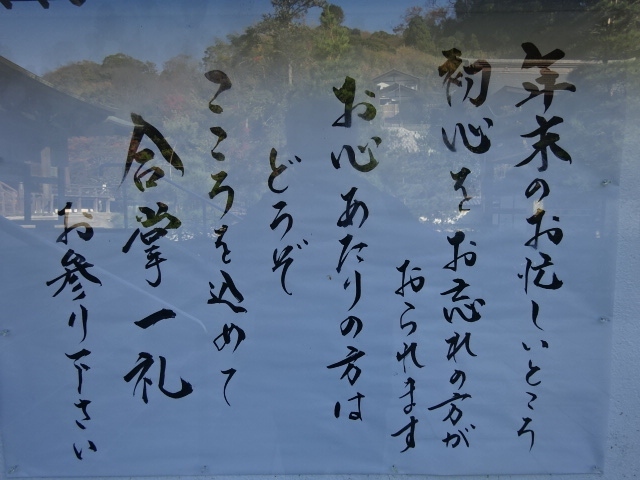 年末のお忙しいところ
初心をお忘れの方が
おられます
お心あたりの方は
どうぞ
こころを込めて
合掌一礼
お参り下さい